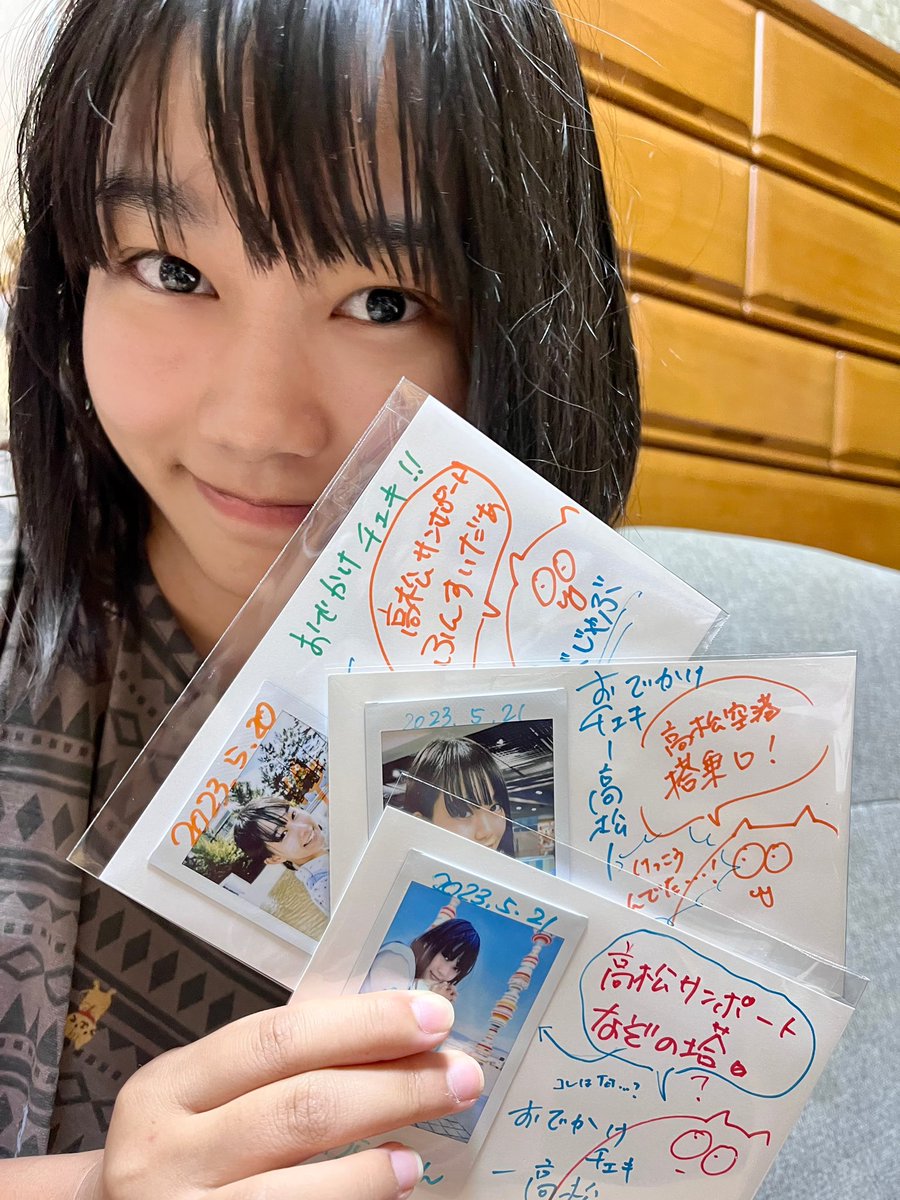 おでかけチェキ!!
高松サンポート
ふんすいだぁ
じゃぶ
2023.5.20
2023.5.21
おでかけ
チェキ
ー高松ー
高松空港
搭乗口!
けっこう
んでた…!
2023.5.21
高松サンポート
なぞの塔。
?
コレはなに…?
おでかけ
チェキ
ー高松